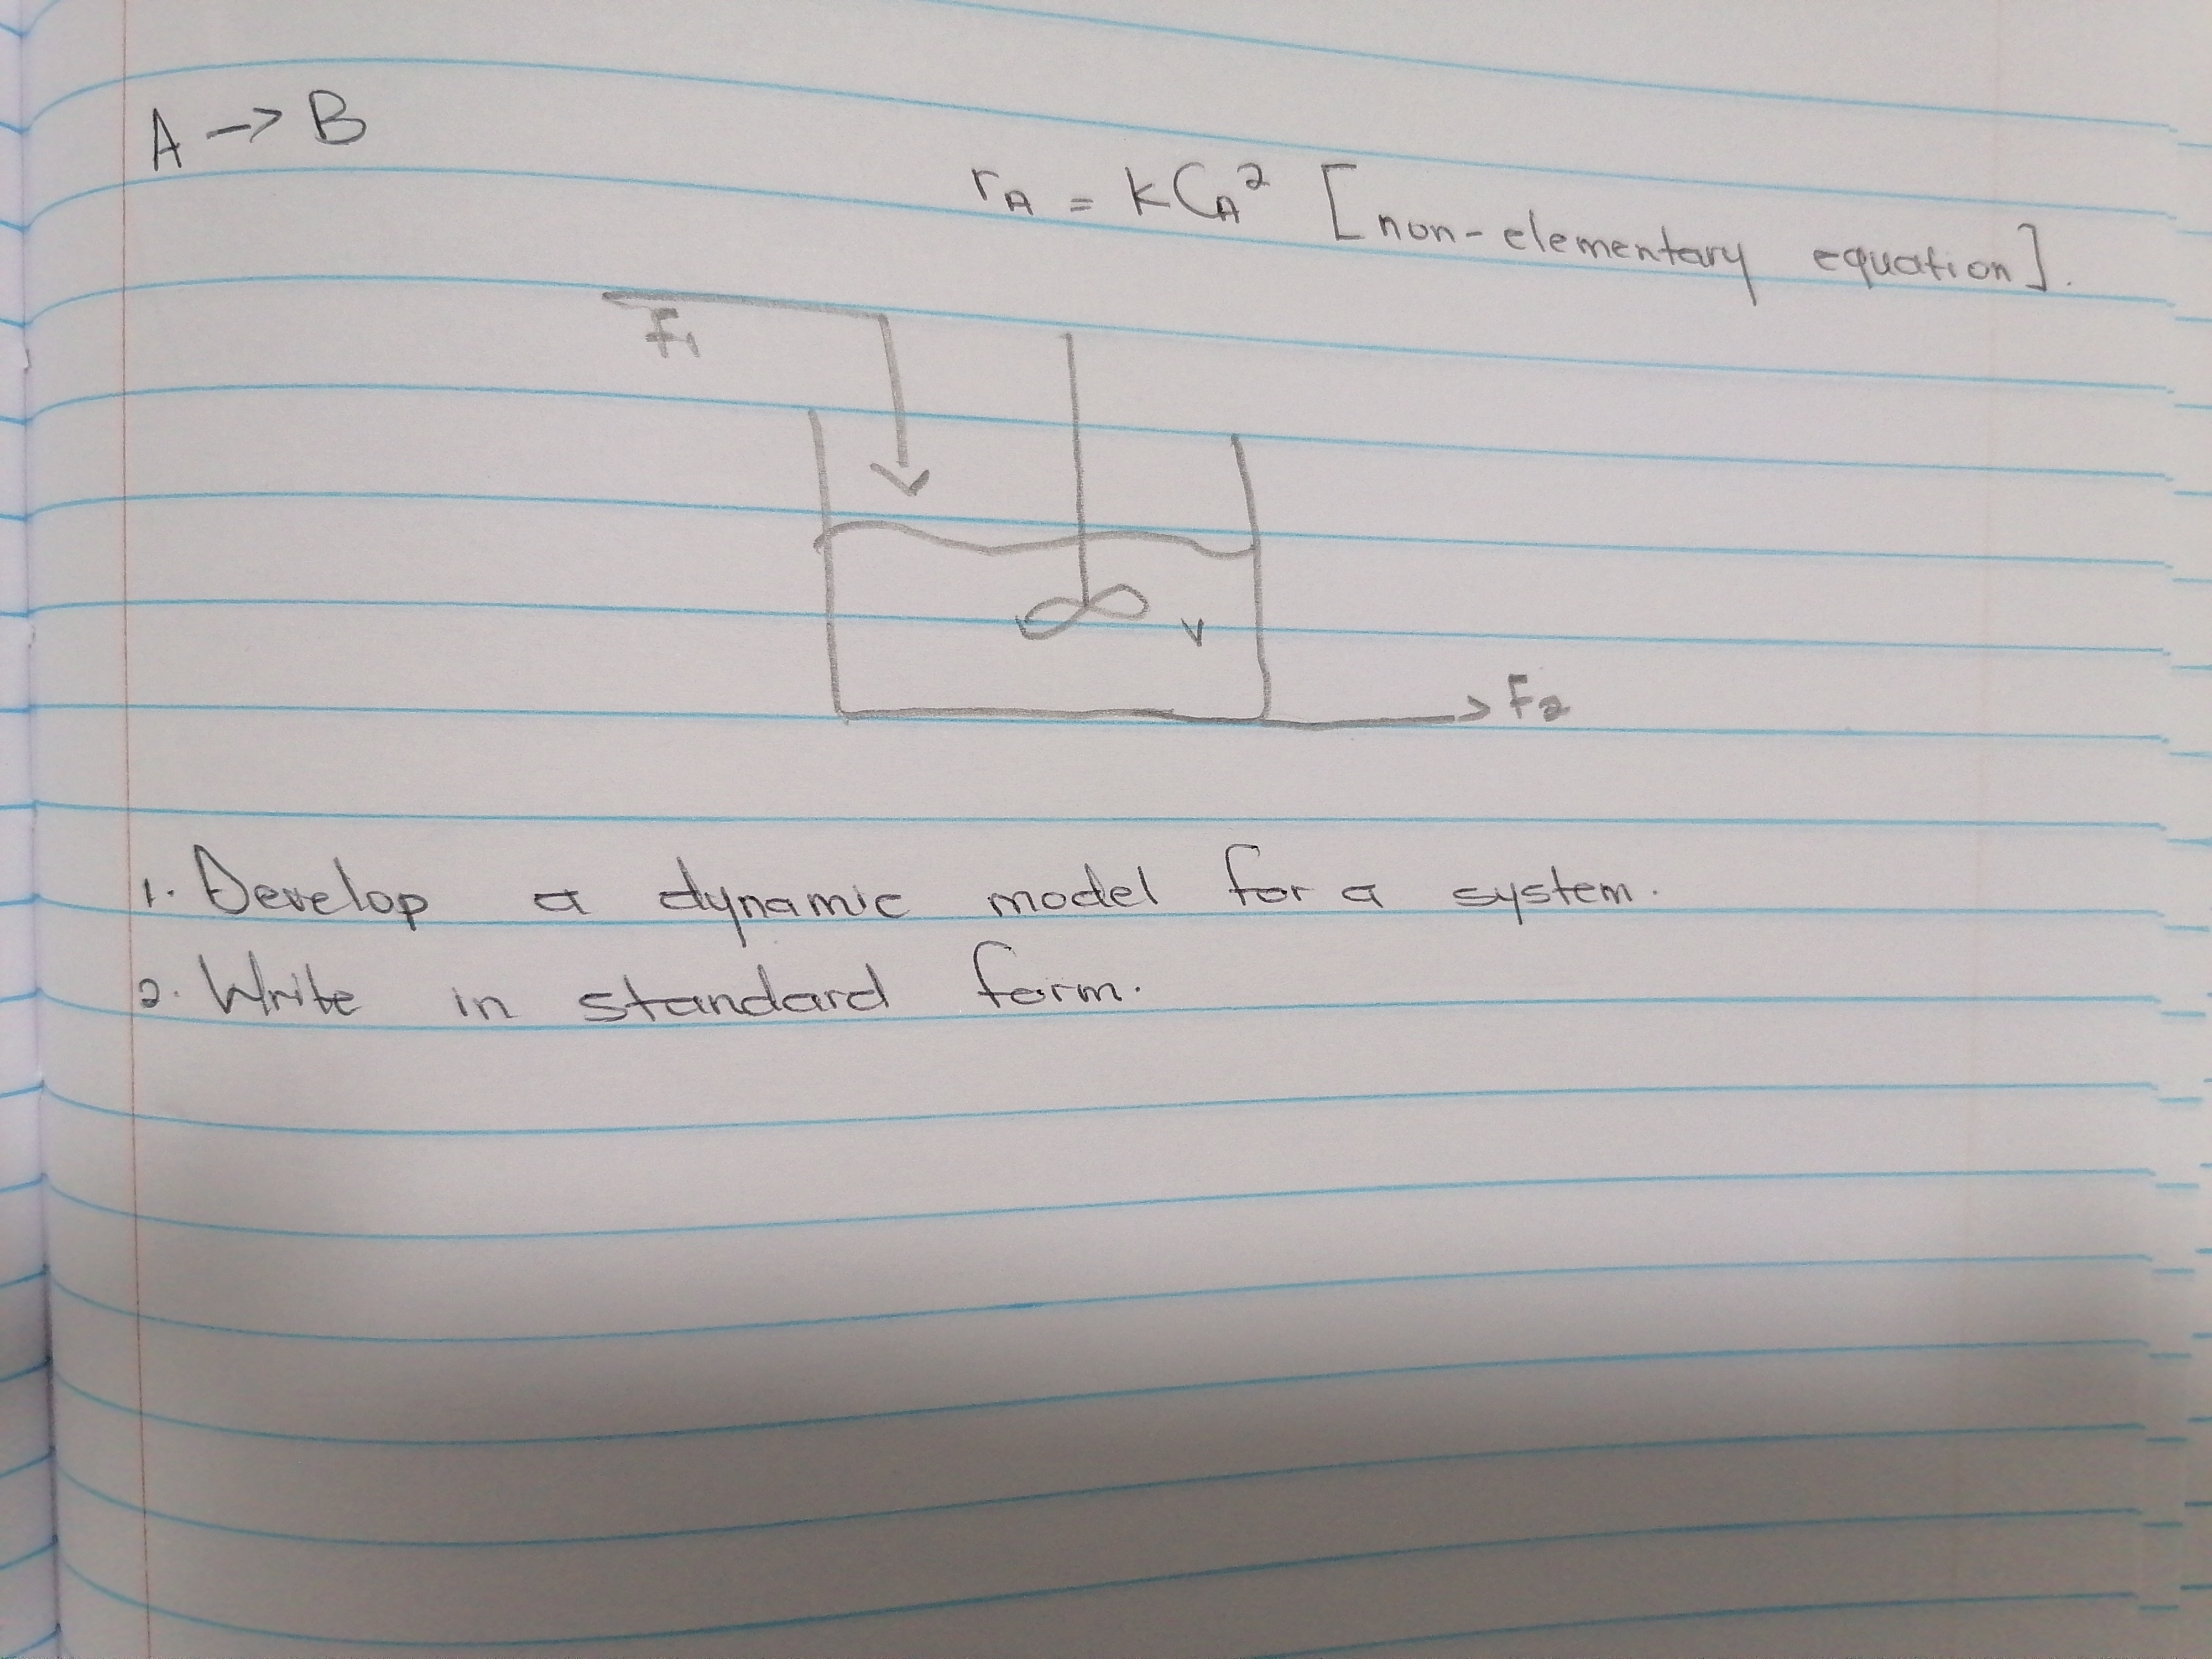 A -> B
r_A = kC_A² [non-elementary equation].
F₁
V
F₂
1. Develop a dynamic model for a system.
2. Write in standard form.